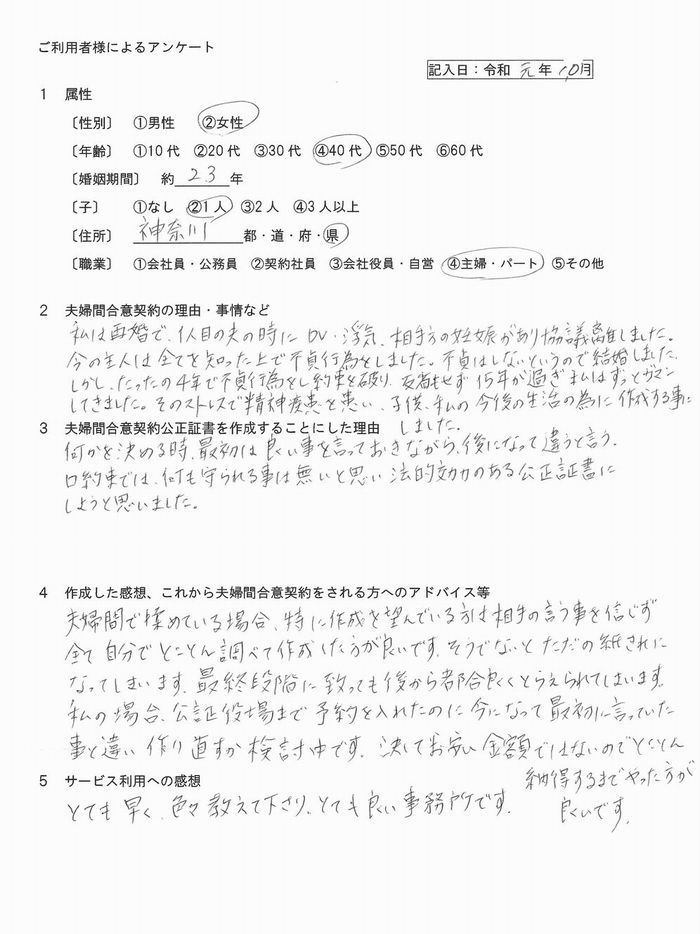 ご利用者様によるアンケート
記入日：令和 元年 10月
1 属性
〔性別〕 ①男性 ②女性
〔年齢〕 ①10代 ②20代 ③30代 ④40代 ⑤50代 ⑥60代
〔婚姻期間〕 約 23 年
〔子〕 ①なし ②1人 ③2人 ④3人以上
〔住所〕 神奈川 都・道・府・県
〔職業〕 ①会社員・公務員 ②契約社員 ③会社役員・自営 ④主婦・パート ⑤その他
2 夫婦間合意契約の理由・事情など
私は再婚で、1人目の夫の時に DV・浮気、相手方の妊娠があり協議離しました。
今の主人は全てを知った上で不貞行為をしました。不貞はしないというので結婚しました。
しかし、たったの4年で不貞行為をし約束を破り、反省もせず15年が過ぎ私はずっとガマン
してきました。そのストレスで精神疾患を患い、子供、私の今後の生活の為に作成する事に
しました。
3 夫婦間合意契約公正証書を作成することにした理由
何かを決める時、最初は良い事を言っておきながら、後になって違うと言う。
口約束では、何も守られる事は無いと思い法的効力のある公正証書に
しようと思いました。
4 作成した感想、これから夫婦間合意契約をされる方へのアドバイス等
夫婦間で揉めている場合、特に作成を望んでいる方は相手の言う事を信じず
全て自分でとことん調べて作成したほうが良いです。そうでないとただの紙きれに
なってしまいます。最終段階に致っても後から都合良くとらえられてしまいます。
私の場合、公証役場まで予約を入れたのに今になって最初に言っていた
事と違い作り直すか検討中です。決してお安い金額ではないのでとことん
納得するまでやった方が
良いです。
5 サービス利用への感想
とても早く、色々教えて下さり、とても良い事務所です。